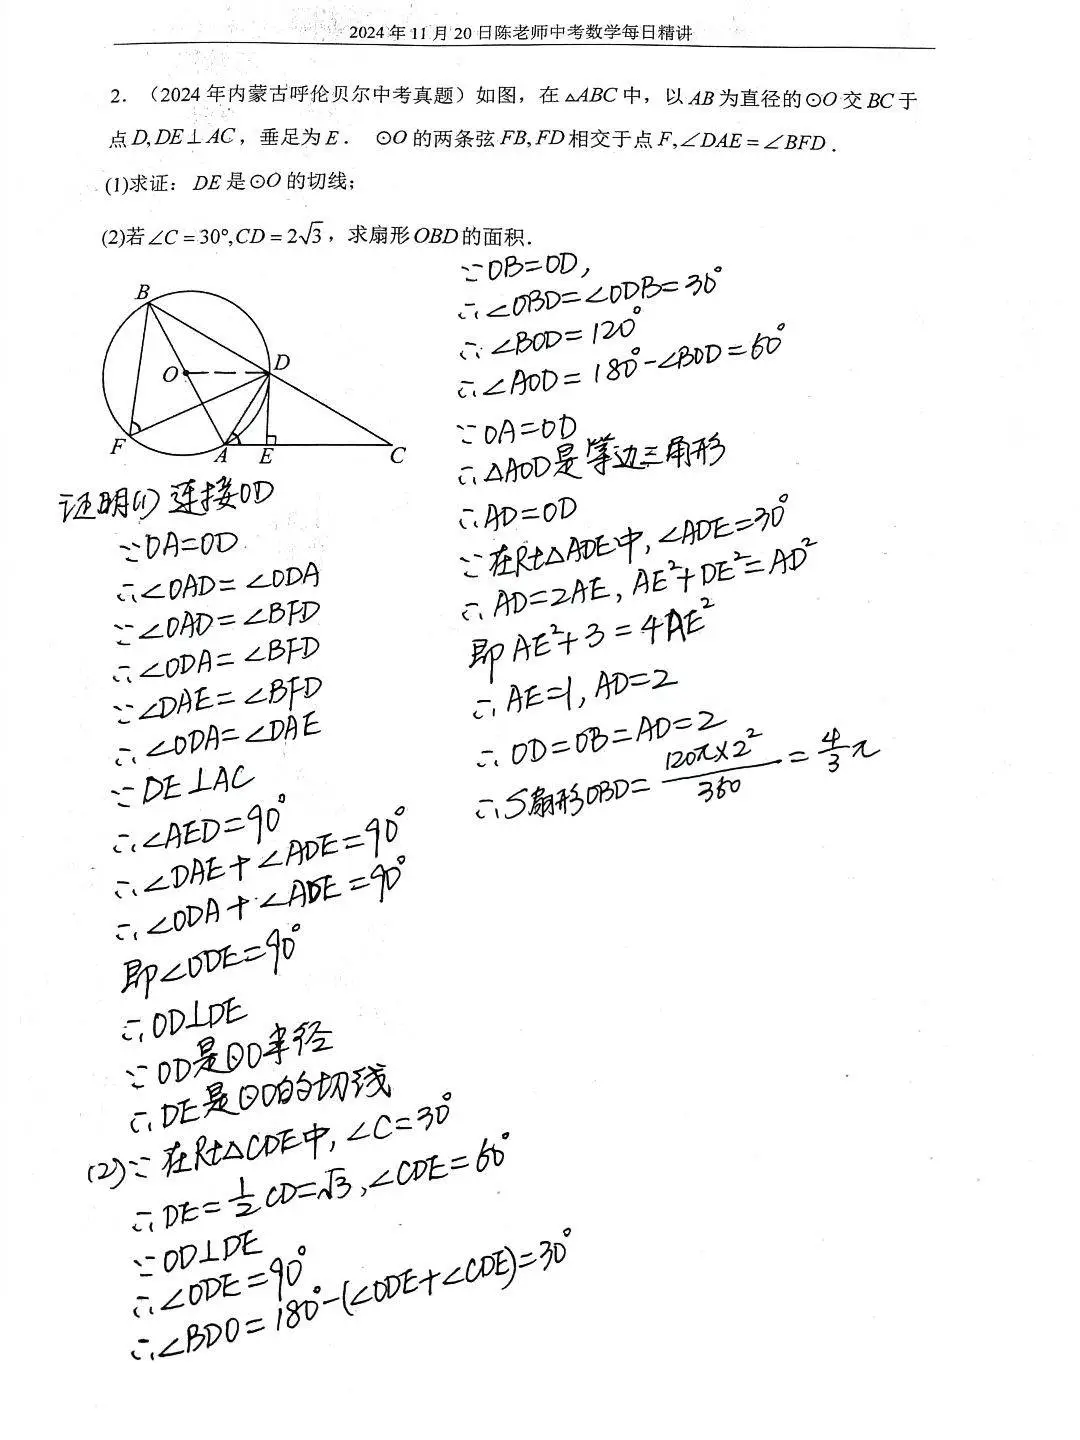 2024年11月20日陈老师中考数学每日精讲
2．（2024年内蒙古呼伦贝尔中考真题）如图，在△ABC中，以AB为直径的⊙O交BC于
点D,DE⊥AC，垂足为E． ⊙O的两条弦FB,FD相交于点F,∠DAE=∠BFD．
(1)求证：DE是⊙O的切线；
(2)若∠C=30°,CD=2√3，求扇形OBD的面积．
B
O
D
F
A
E
C
证明(1) 连接OD
∵OA=OD
∴∠OAD=∠ODA
∵∠OAD=∠BFD
∴∠ODA=∠BFD
∵∠DAE=∠BFD
∴∠ODA=∠DAE
∵DE⊥AC
∴∠AED=90°
∴∠DAE+∠ADE=90°
∴∠ODA+∠ADE=90°
即∠ODE=90°
∴OD⊥DE
∵OD是⊙O半径
∴DE是⊙O的切线
(2)∵在Rt△CDE中,∠C=30°
∴DE=1/2CD=√3,∠CDE=60°
∵OD⊥DE
∴∠ODE=90°
∴∠BDO=180°-(∠ODE+∠CDE)=30°
∵OB=OD,
∴∠OBD=∠ODB=30°
∴∠BOD=120°
∴∠AOD=180°-∠BOD=60°
∵OA=OD
∴△AOD是等边三角形
∴AD=OD
∵在Rt△ADE中,∠ADE=30°
∴AD=2AE,AE²+DE²=AD²
即AE²+3=4AE²
∴AE=1,AD=2
∴OD=OB=AD=2
∴S扇形OBD=120π×2²/360=4/3π